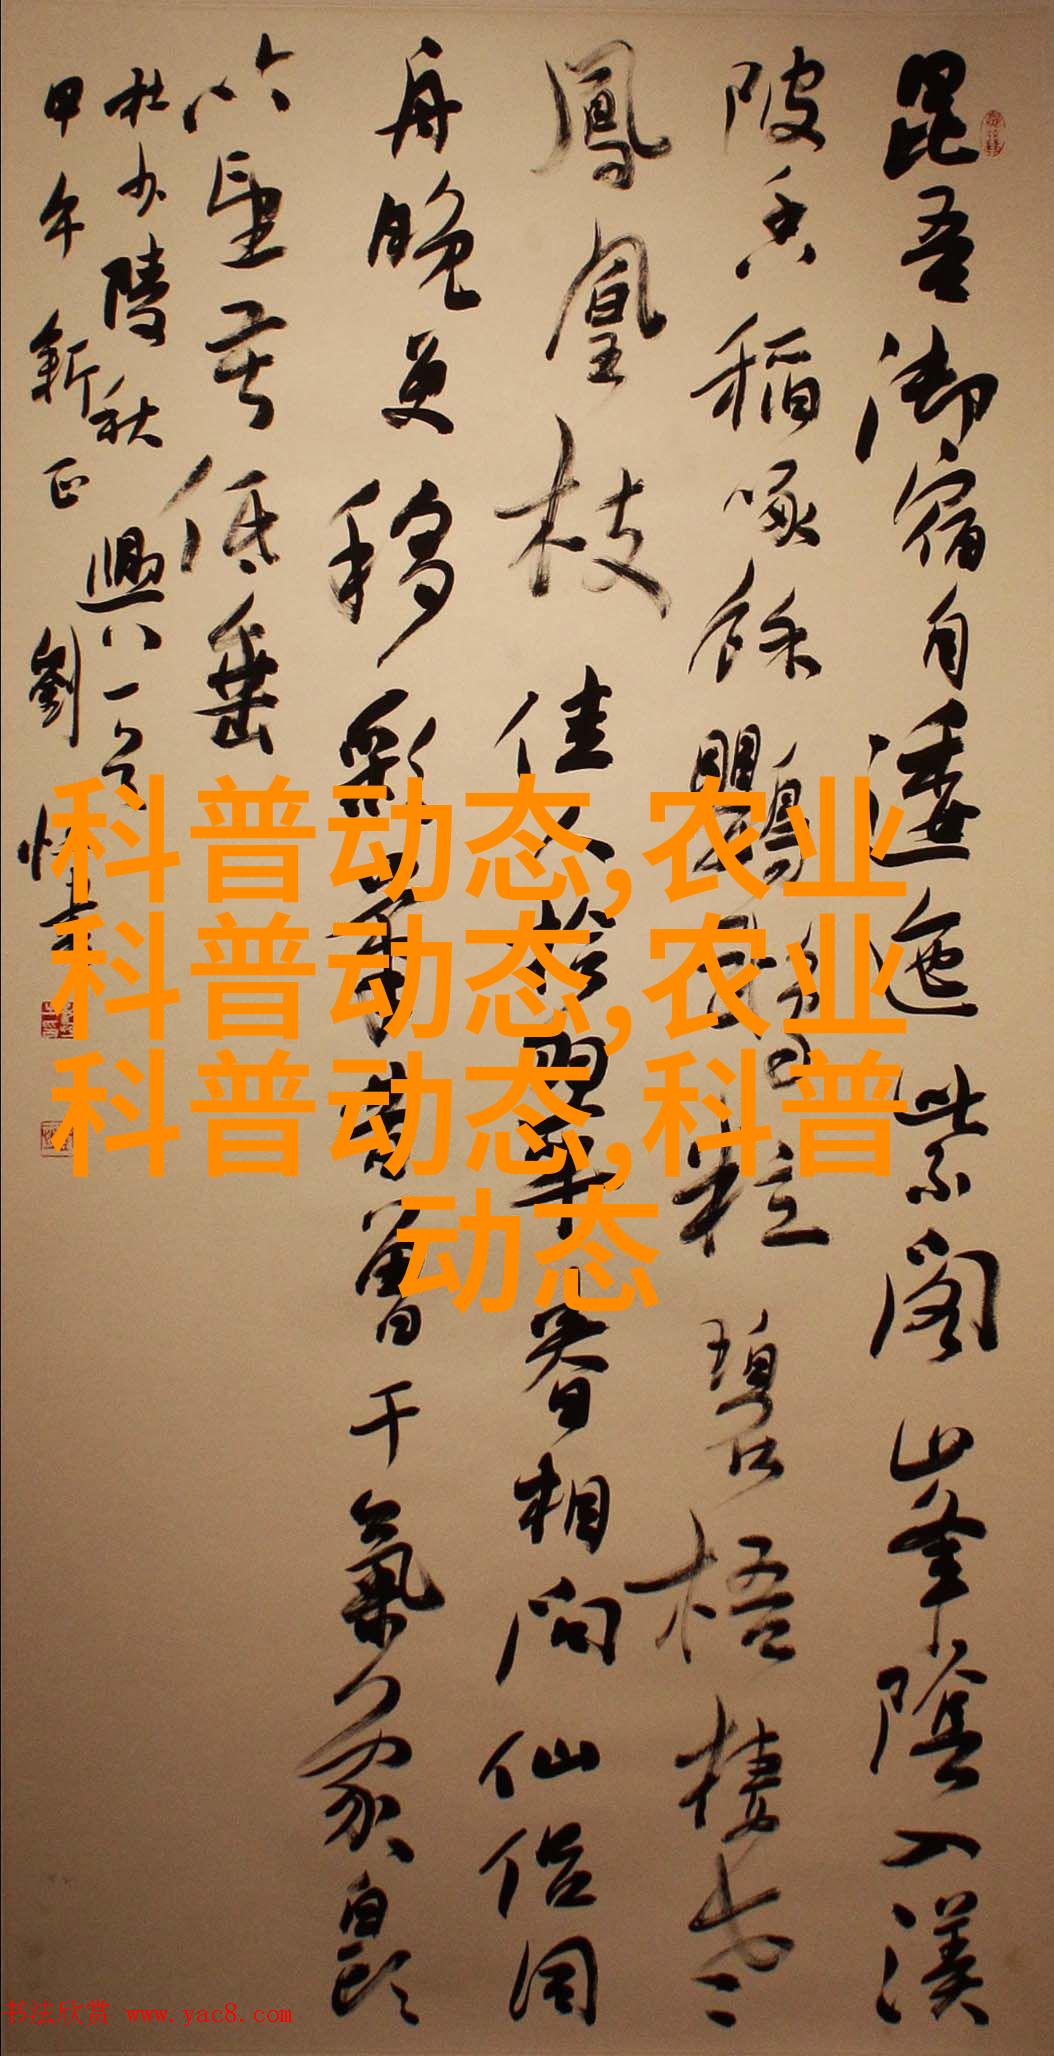 昆吾御宿自逶迤紫閣山峯陰入渼
陂香稻啄餘鸚鵡粒碧梧棲老
鳳凰枝佳人拾翠春相問仙侶同
舟晚更移彩筆昔曾干氣象白頭
吟望苦低垂
杜少陵秋興八一首
甲午新正劉恒書
科普动态,农业
科普动态,农业
科普动态,科普
动态
书法欣赏 www.yac8.com